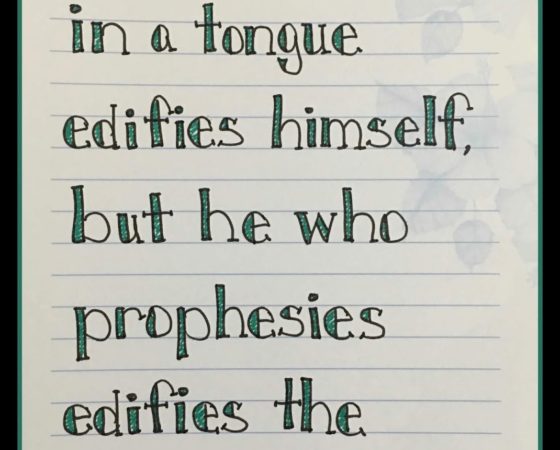 in a tongue
edifies himself,
but he who
prophesies
edifies the